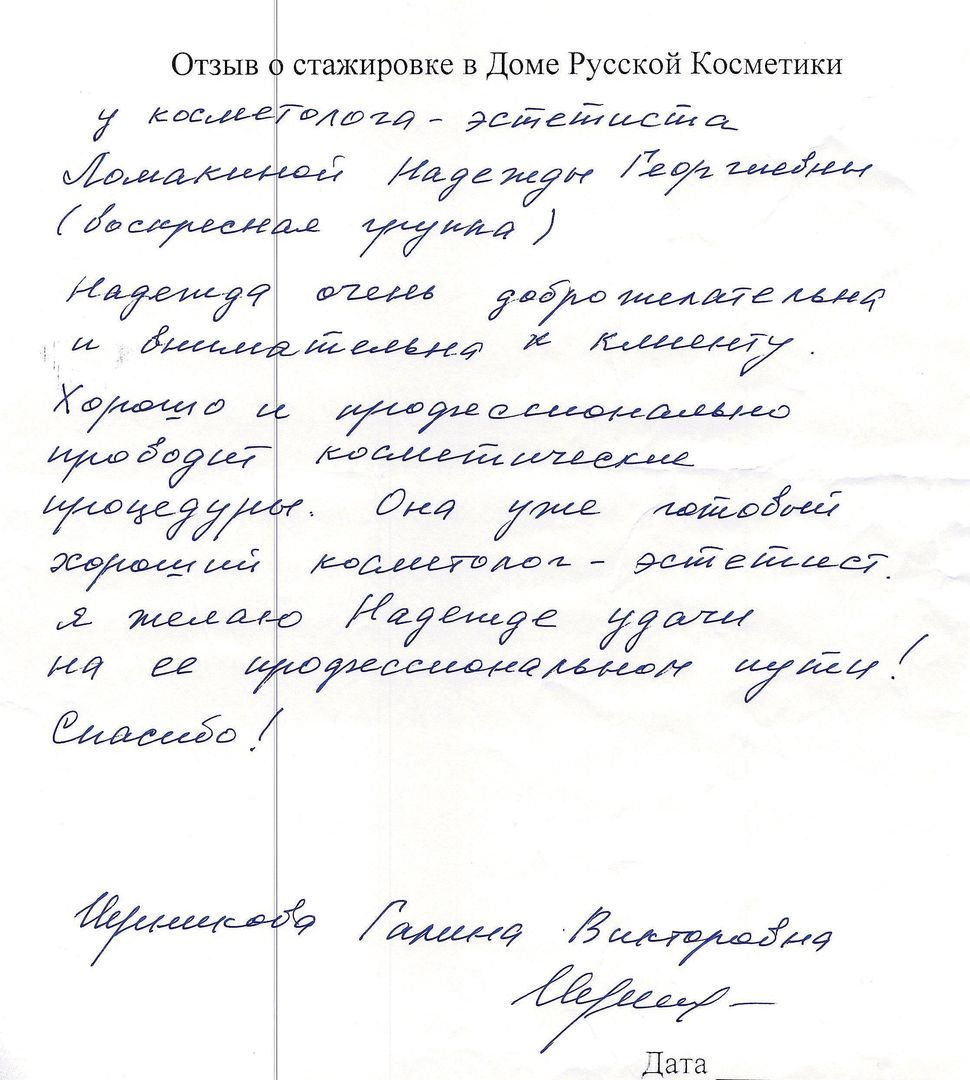 Отзыв о стажировке в Доме Русской Косметики
у косметолога - эстетиста
Ломакиной Надежды Георгиевны
(воскресная группа)
Надежда очень доброжелательна
и внимательна к клиенту.
Хорошо и профессионально
проводит косметические
процедуры. Она уже готовый
хороший косметолог - эстетист.
я желаю Надежде удачи
на ее профессиональном пути!
Спасибо!
Галина Викторовна
Дата